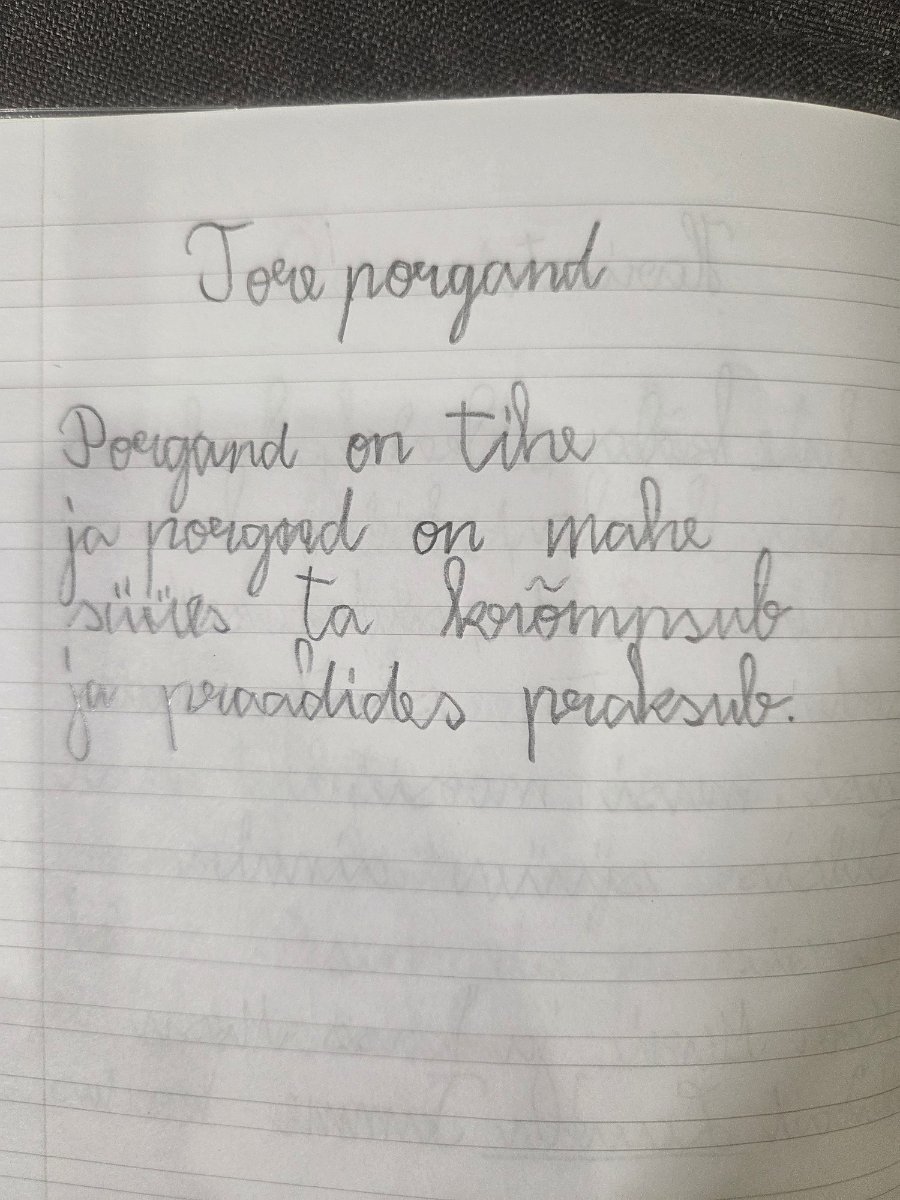 Tore porgand
Porgand on tihe
ja porgand on mahe
süües ta krõmpsub
ja praadides praksub.